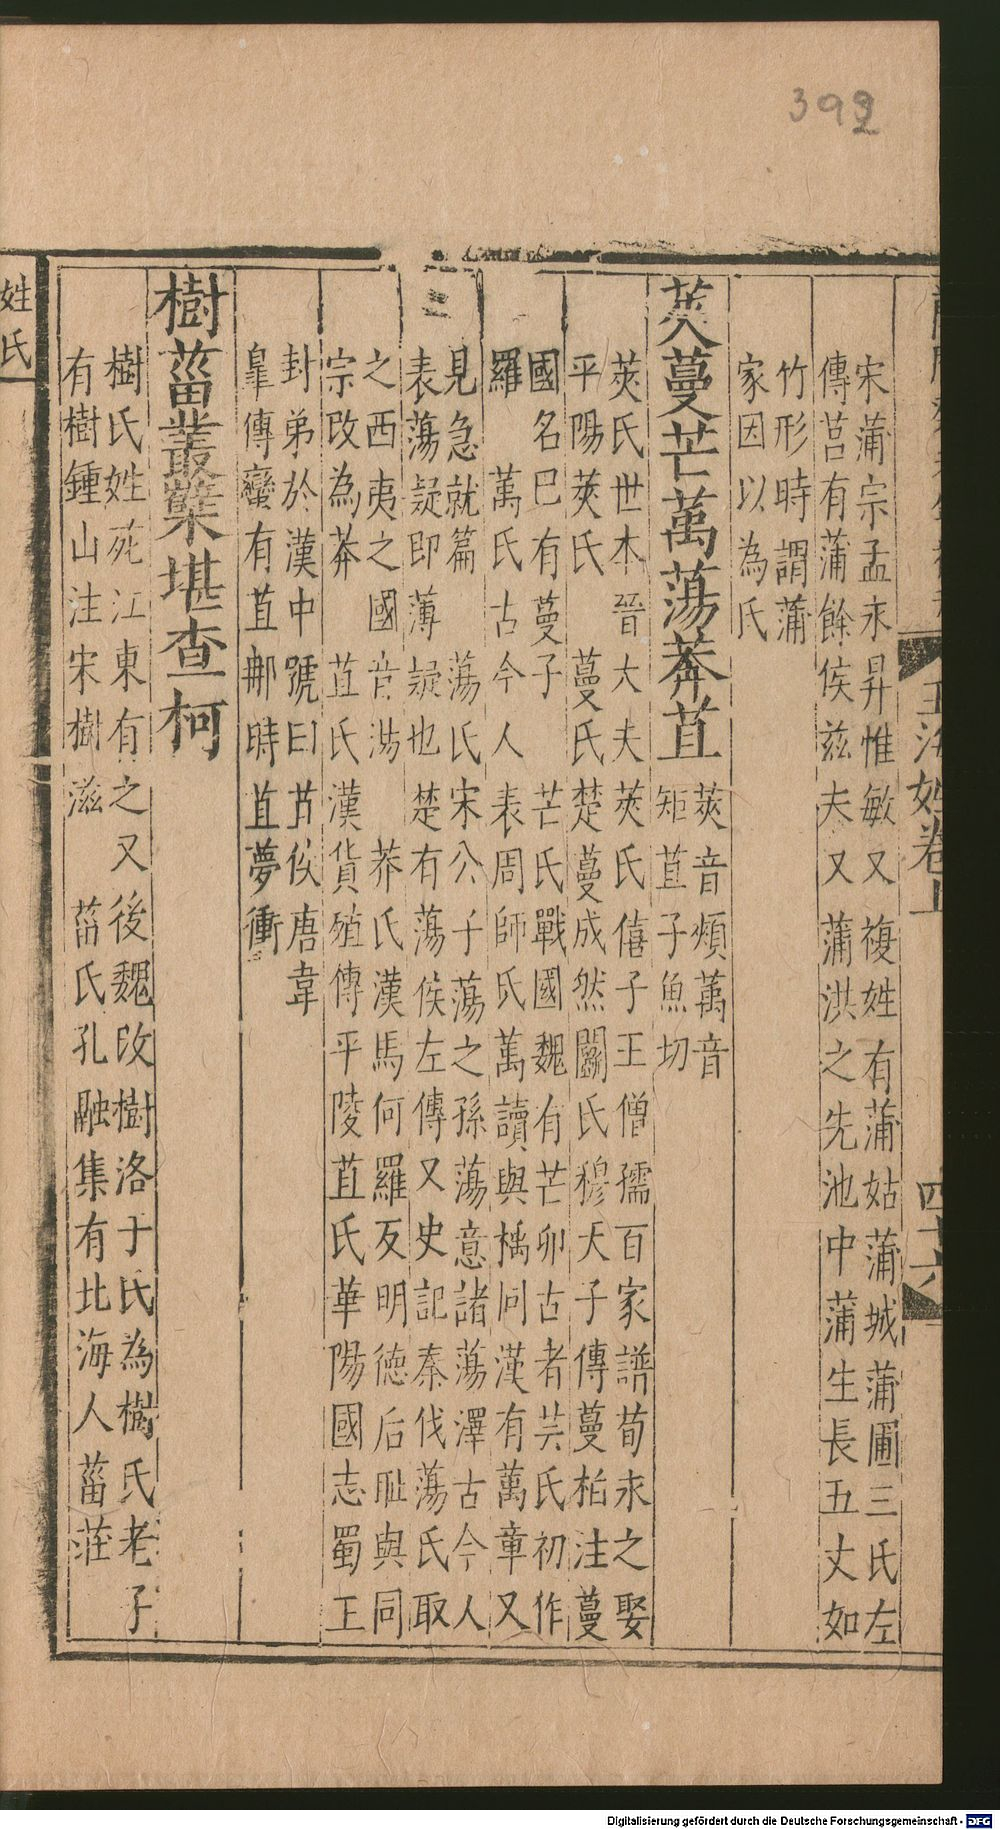 399
姓氏
玉海姓卷上
四十六
宋蒲宗孟永昇惟敏又複姓有蒲姑蒲城蒲圃三氏左
傳莒有蒲餘侯兹夫又蒲洪之先池中蒲生長五丈如
竹形時謂蒲
家因以為氏
莢蔓芒萬蕩莽苴
莢音頰萬音
矩苴子魚切
莢氏世本晉大夫莢氏僖子王僧孺百家譜荀永之娶
平陽莢氏 蔓氏楚蔓成然鬬氏穆天子傳蔓柏注蔓
國名巴有蔓子 芒氏戰國魏有芒卯古者芸氏初作
羅 萬氏古今人表周師氏萬讀與楀同漢有萬章又
見急就篇 蕩氏宋公子蕩之孫蕩意諸蕩澤古今人
表蕩疑即薄疑也楚有蕩侯左傳又史記秦伐蕩氏取
之西夷之國音湯 莽氏漢馬何羅反明德后恥與同
宗改為莽 苴氏漢貨殖傳平陵苴氏華陽國志蜀王
封弟於漢中號曰苴侯唐韋
臯傳蠻有苴那時苴夢衝
樹菑叢櫱堪查柯
樹氏姓苑江東有之又後魏改樹洛于氏為樹氏老子
有樹鍾山注宋樹滋 菑氏孔融集有北海人菑莊
Digitalisierung gefördert durch die Deutsche Forschungsgemeinschaft - DFG